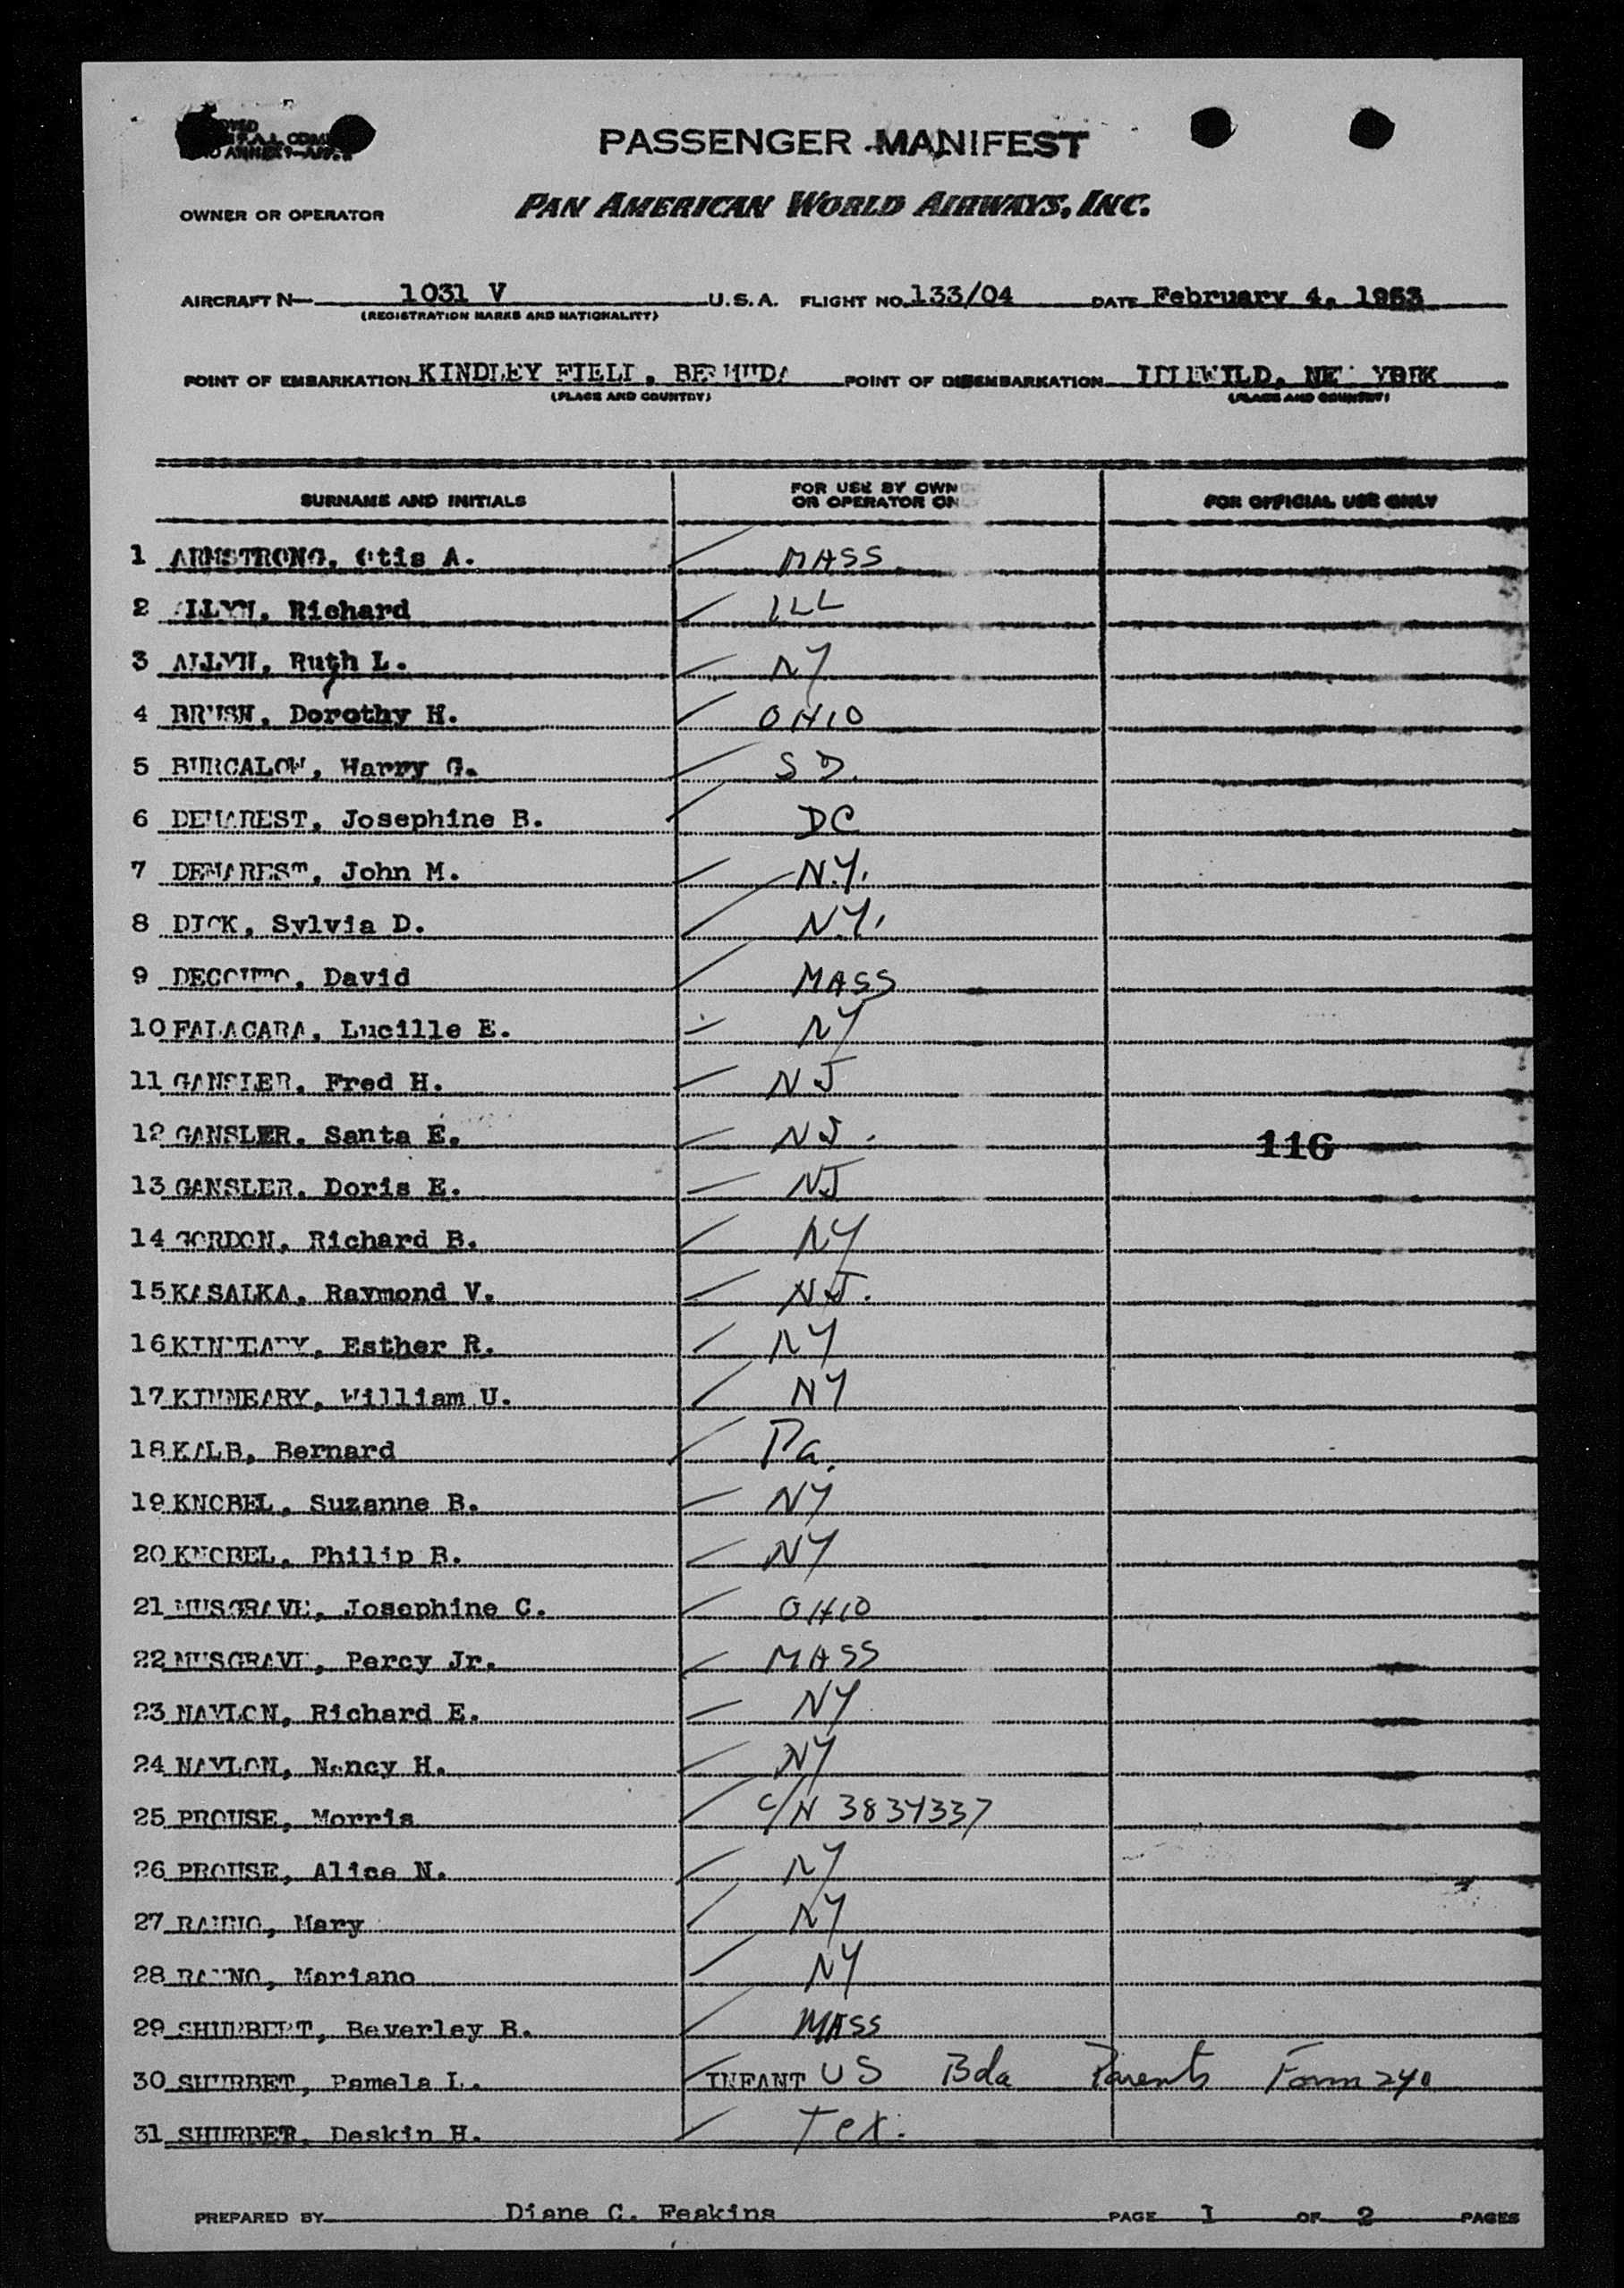 PASSENGER MANIFEST
OWNER OR OPERATOR PAN AMERICAN WORLD AIRWAYS, INC.
AIRCRAFT N— 1031 V U.S.A. FLIGHT NO. 133/04 DATE February 4, 1953
(REGISTRATION MARKS AND NATIONALITY)
POINT OF EMBARKATION KINDLEY FIELD, BERMUDA POINT OF DISEMBARKATION IDLEWILD, NEW YORK
(PLACE AND COUNTRY) (PLACE AND COUNTRY)
SURNAME AND INITIALS FOR USE BY OWN OR OPERATOR ON FOR OFFICIAL USE ONLY
1 ARMSTRONG, Otis A. MASS
2 ALLYN, Richard ILL
3 ALLYN, Ruth L. NY
4 BRUSH, Dorothy H. OHIO
5 BURCALOW, Harry G. S D.
6 DEMAREST, Josephine B. DC
7 DEMAREST, John M. N.Y.
8 DICK, Sylvia D. N.Y.
9 DECOUTO, David MASS
10 FALACARA, Lucille E. NY
11 GANSLER, Fred H. NJ
12 GANSLER, Santa E. NJ. 116
13 GANSLER, Doris E. NJ
14 GORDON, Richard B. NY
15 KASALKA, Raymond V. NJ.
16 KINNEARY, Esther R. NY
17 KINNEARY, William U. NY
18 KALB, Bernard Pa.
19 KNOBEL, Suzanne B. NY
20 KNOBEL, Philip B. NY
21 MUSGRAVE, Josephine C. OHIO
22 MUSGRAVE, Percy Jr. MASS
23 NAYLON, Richard E. NY
24 NAYLON, Nancy H. NY
25 PROUSE, Morris C/N 3834337
26 PROUSE, Alice N. NY
27 Mary NY
28 Mariano NY
29 SHURBERT, Beverley B. MASS
30 SHURBET, Pamela L. INFANT US Bda Parents Form 240
31 SHURBET, Deskin H. Tex.
PREPARED BY Diane C. Feakins PAGE 1 OF 2 PAGES